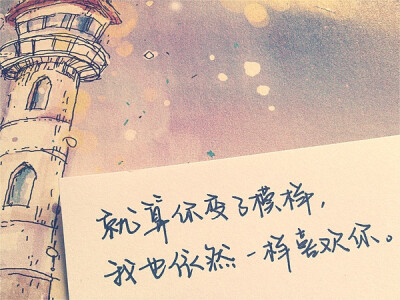 就算你变了模样，
我也依然一样喜欢你。